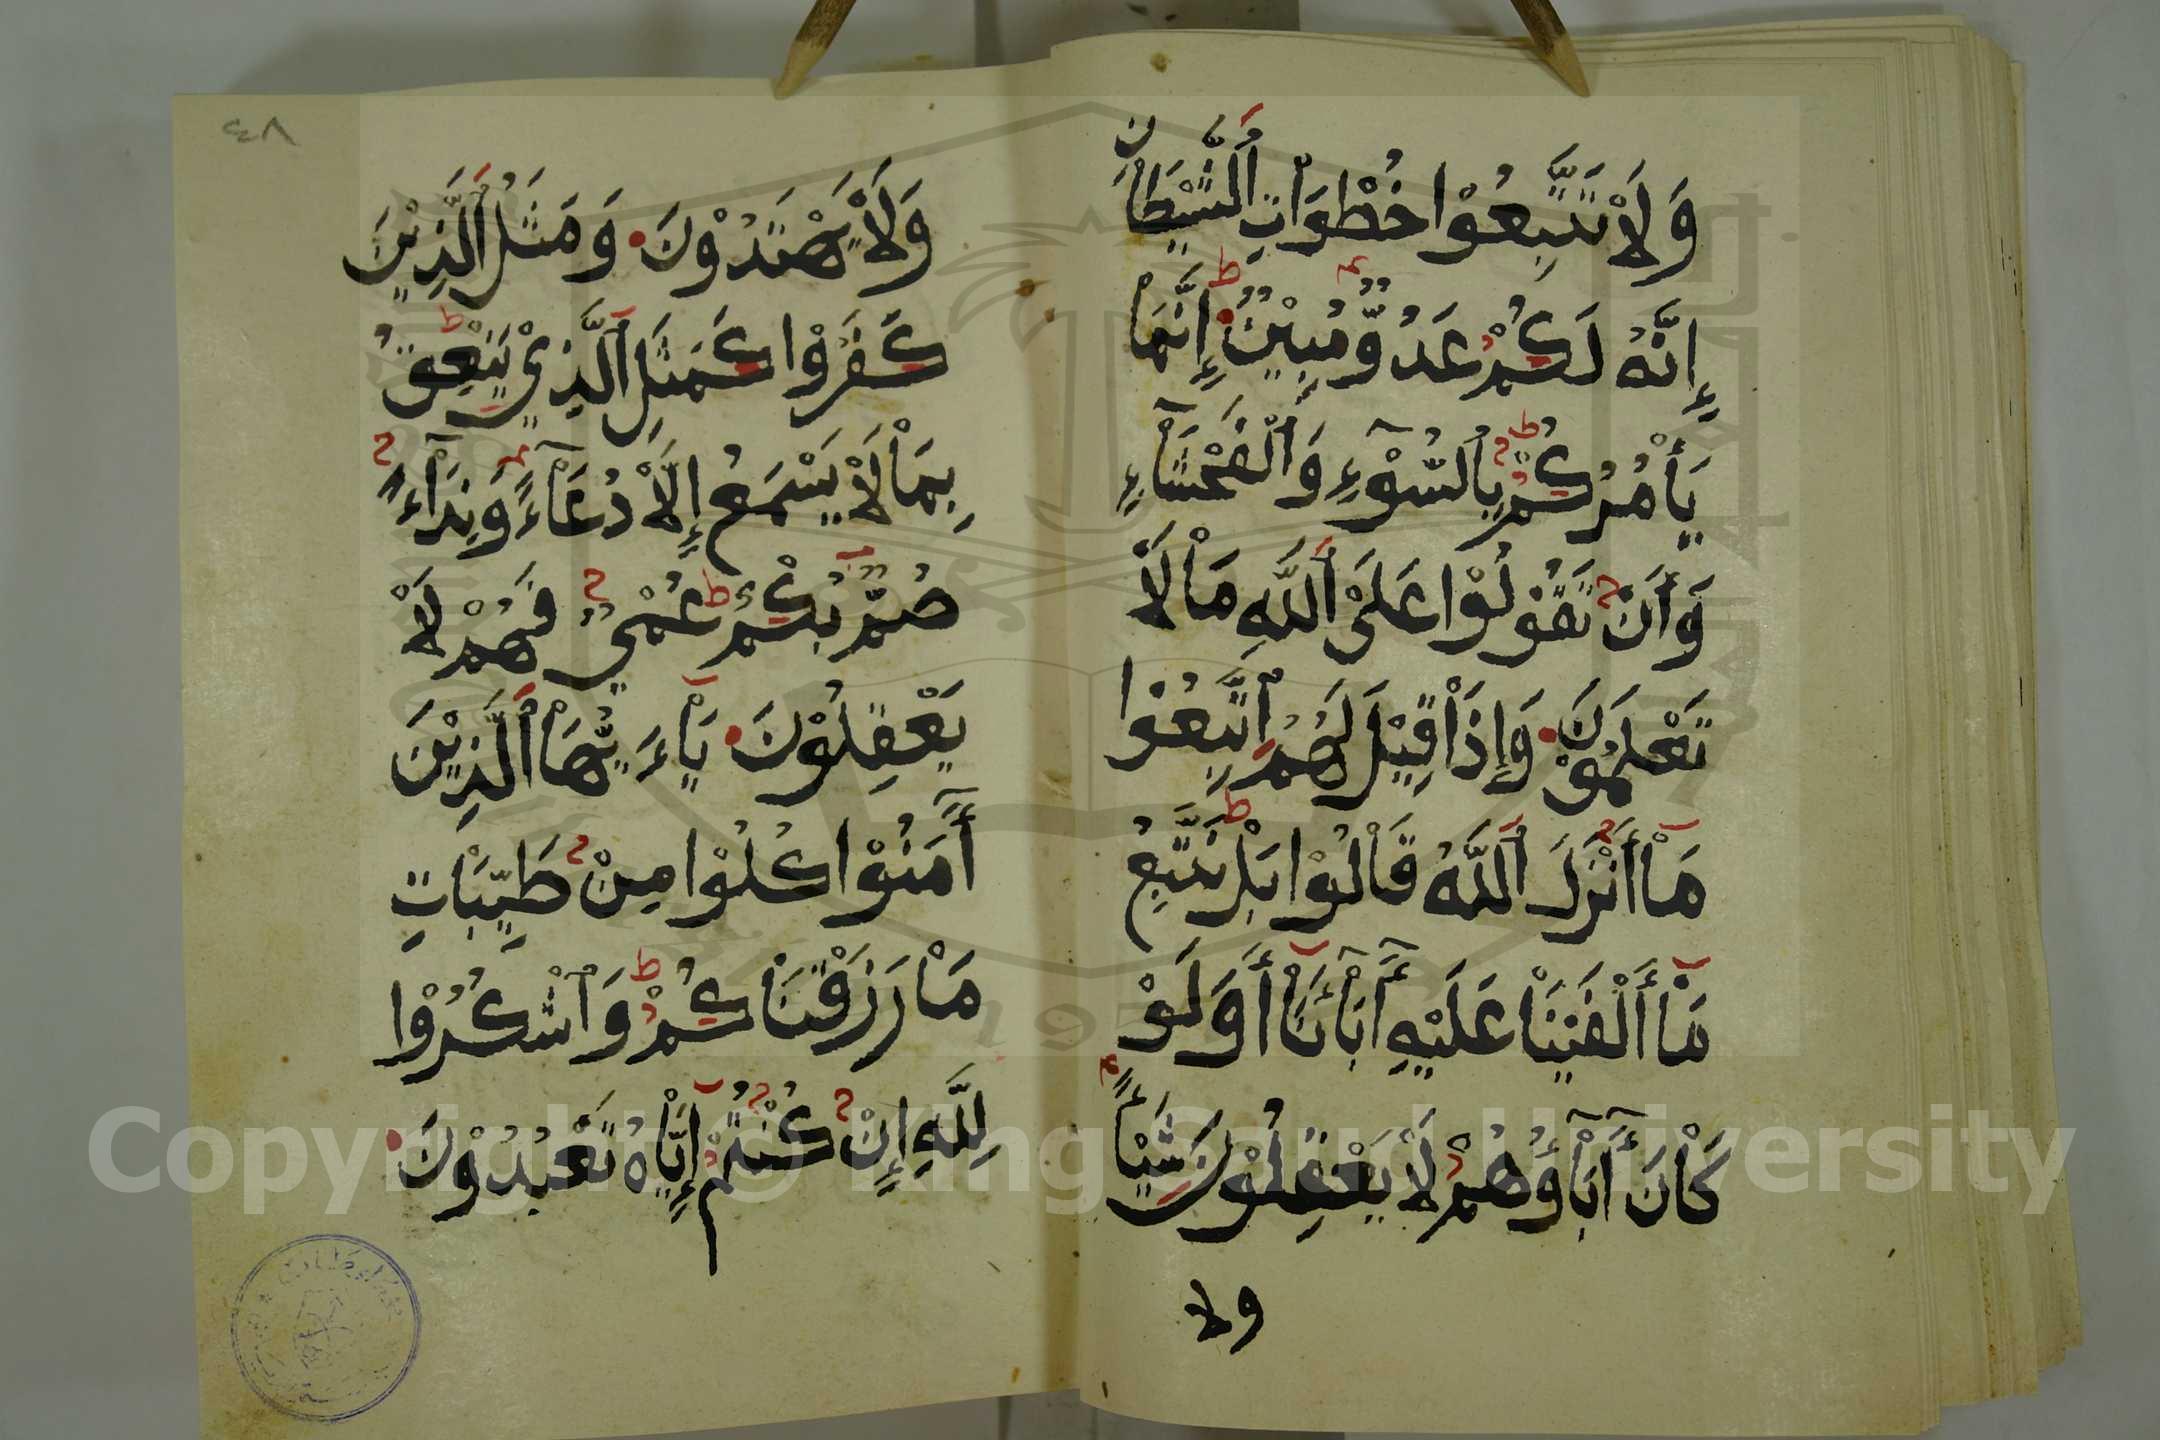 وَلَاْ تَتَّبِعُوْا خُطْوَاْتِ اَلشَّيْطَاْنِ
إِنَّهُ لَكُمْ عَدُوٌّ مُبِيْنٌ إِنَّمَاْ
يَأْمُرُكُمْ بِالسُّوْءِ وَالْفَحْشَاْءِ
وَأَنْ تَقُوْلُوْا عَلَىْ اَللَّهِ مَاْ لَاْ
تَعْلَمُوْنَ وَإِذَاْ قِيْلَ لَهُمُ اتَّبِعُوْا
مَاْ أَنْزَلَ اَللَّهُ قَاْلُوْا بَلْ نَتَّبِعُ
مَاْ أَلْفَيْنَاْ عَلَيْهِ أَٓبَاْءَنَاْ أَوَلَوْ
كَاْنَ أَٓبَاْؤُهُمْ لَاْ يَعْقِلُوْنَ شَيْأً
ولا
٤٨
وَلَاْ يَهْتَدُوْنَ وَمَثَلُ اَلَّذِيْنَ
كَفَرُوْا كَمَثَلِ اَلَّذِيْ يَنْعِقُ
بِمَاْ لَاْ يَسْمَعُ إِلَّاْ دُعَاْءً وَنِدَاْءً
صُمٌّ بُكْمٌ عُمْيٌ فَهُمْ لَاْ
يَعْقِلُوْنَ يَاْءَيُّهَاْ اَلَّذِيْنَ
أَٓمَنُوْا كُلُوْا مِنْ طَيِّبَاْتِ
مَاْ رَزَقْنَاْكُمْ وَاشْكُرُوْا
لِلَّهِ إِنْ كُنْتُمْ إِيَّاْهُ تَعْبُدُوْنَ
Copyright © King Saud University